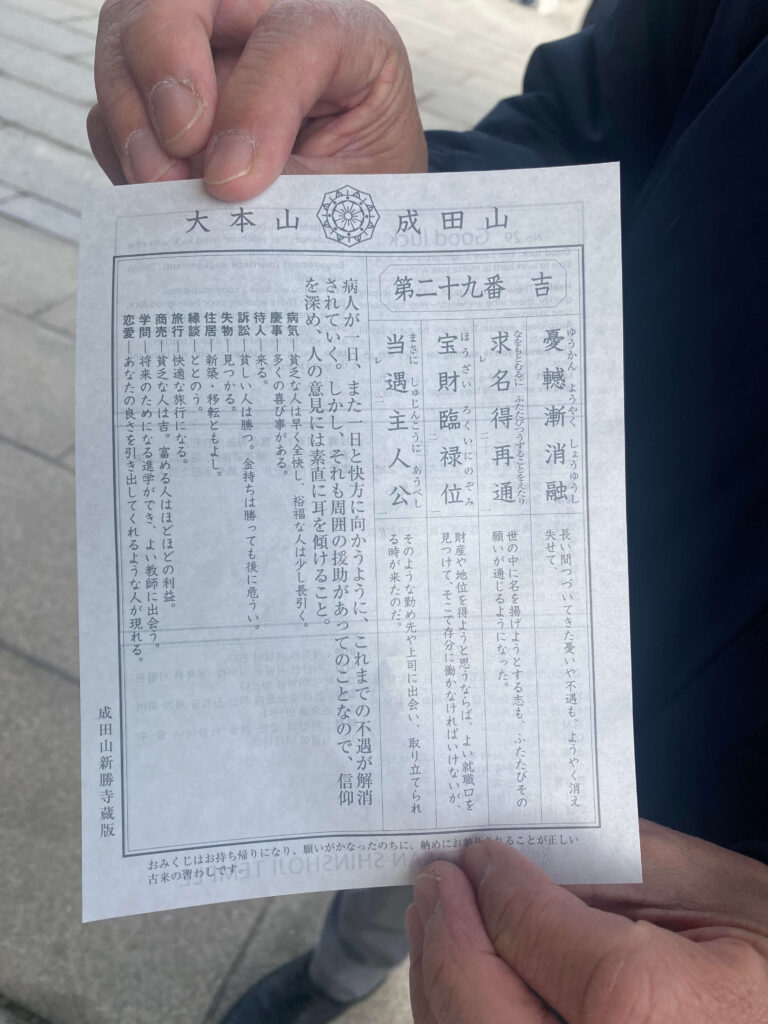 大本山 成田山
第二十九番 吉
憂轗漸消融
ゆうかん ようやく しょうゆうし
長い間つづいてきた憂いや不遇も、ようやく消え
失せて、
求名得再通
なをもとむるに ふたたびつうずることをえたり
レ 二 一
世の中に名を揚げようとする志も、ふたたびその
願いが通じるようになった。
宝財臨禄位
ほうざい ろくいにのぞみ
二 一
財産や地位を得ようと思うならば、よい就職口を
見つけて、そこで存分に働かなければいけないが、
当遇主人公
まさに しゅじんこうに あうべし
レ 二 一
そのような勤め先や上司に出会い、取り立てられ
る時が来たのだ。
病人が一日、また一日と快方に向かうように、これまでの不遇が解消
されていく。しかし、それも周囲の援助があってのことなので、信仰
を深め、人の意見には素直に耳を傾けること。
病気―貧乏な人は早く全快し、裕福な人は少し長引く。
慶事―多くの喜び事がある。
待人―来る。
訴訟―貧しい人は勝つ。金持ちは勝っても後に危うい。
失物―見つかる。
住居―新築・移転ともよし。
縁談―ととのう。
旅行―快適な旅行になる。
商売―貧乏な人は吉。富める人はほどほどの利益。
学問―将来のためになる進学ができ、よい教師に出会う。
恋愛―あなたの良さを引き出してくれるような人が現れる。
成田山新勝寺蔵版
おみくじはお持ち帰りになり、願いがかなったのちに、納めにお参りされることが正しい
古来の習わしです。